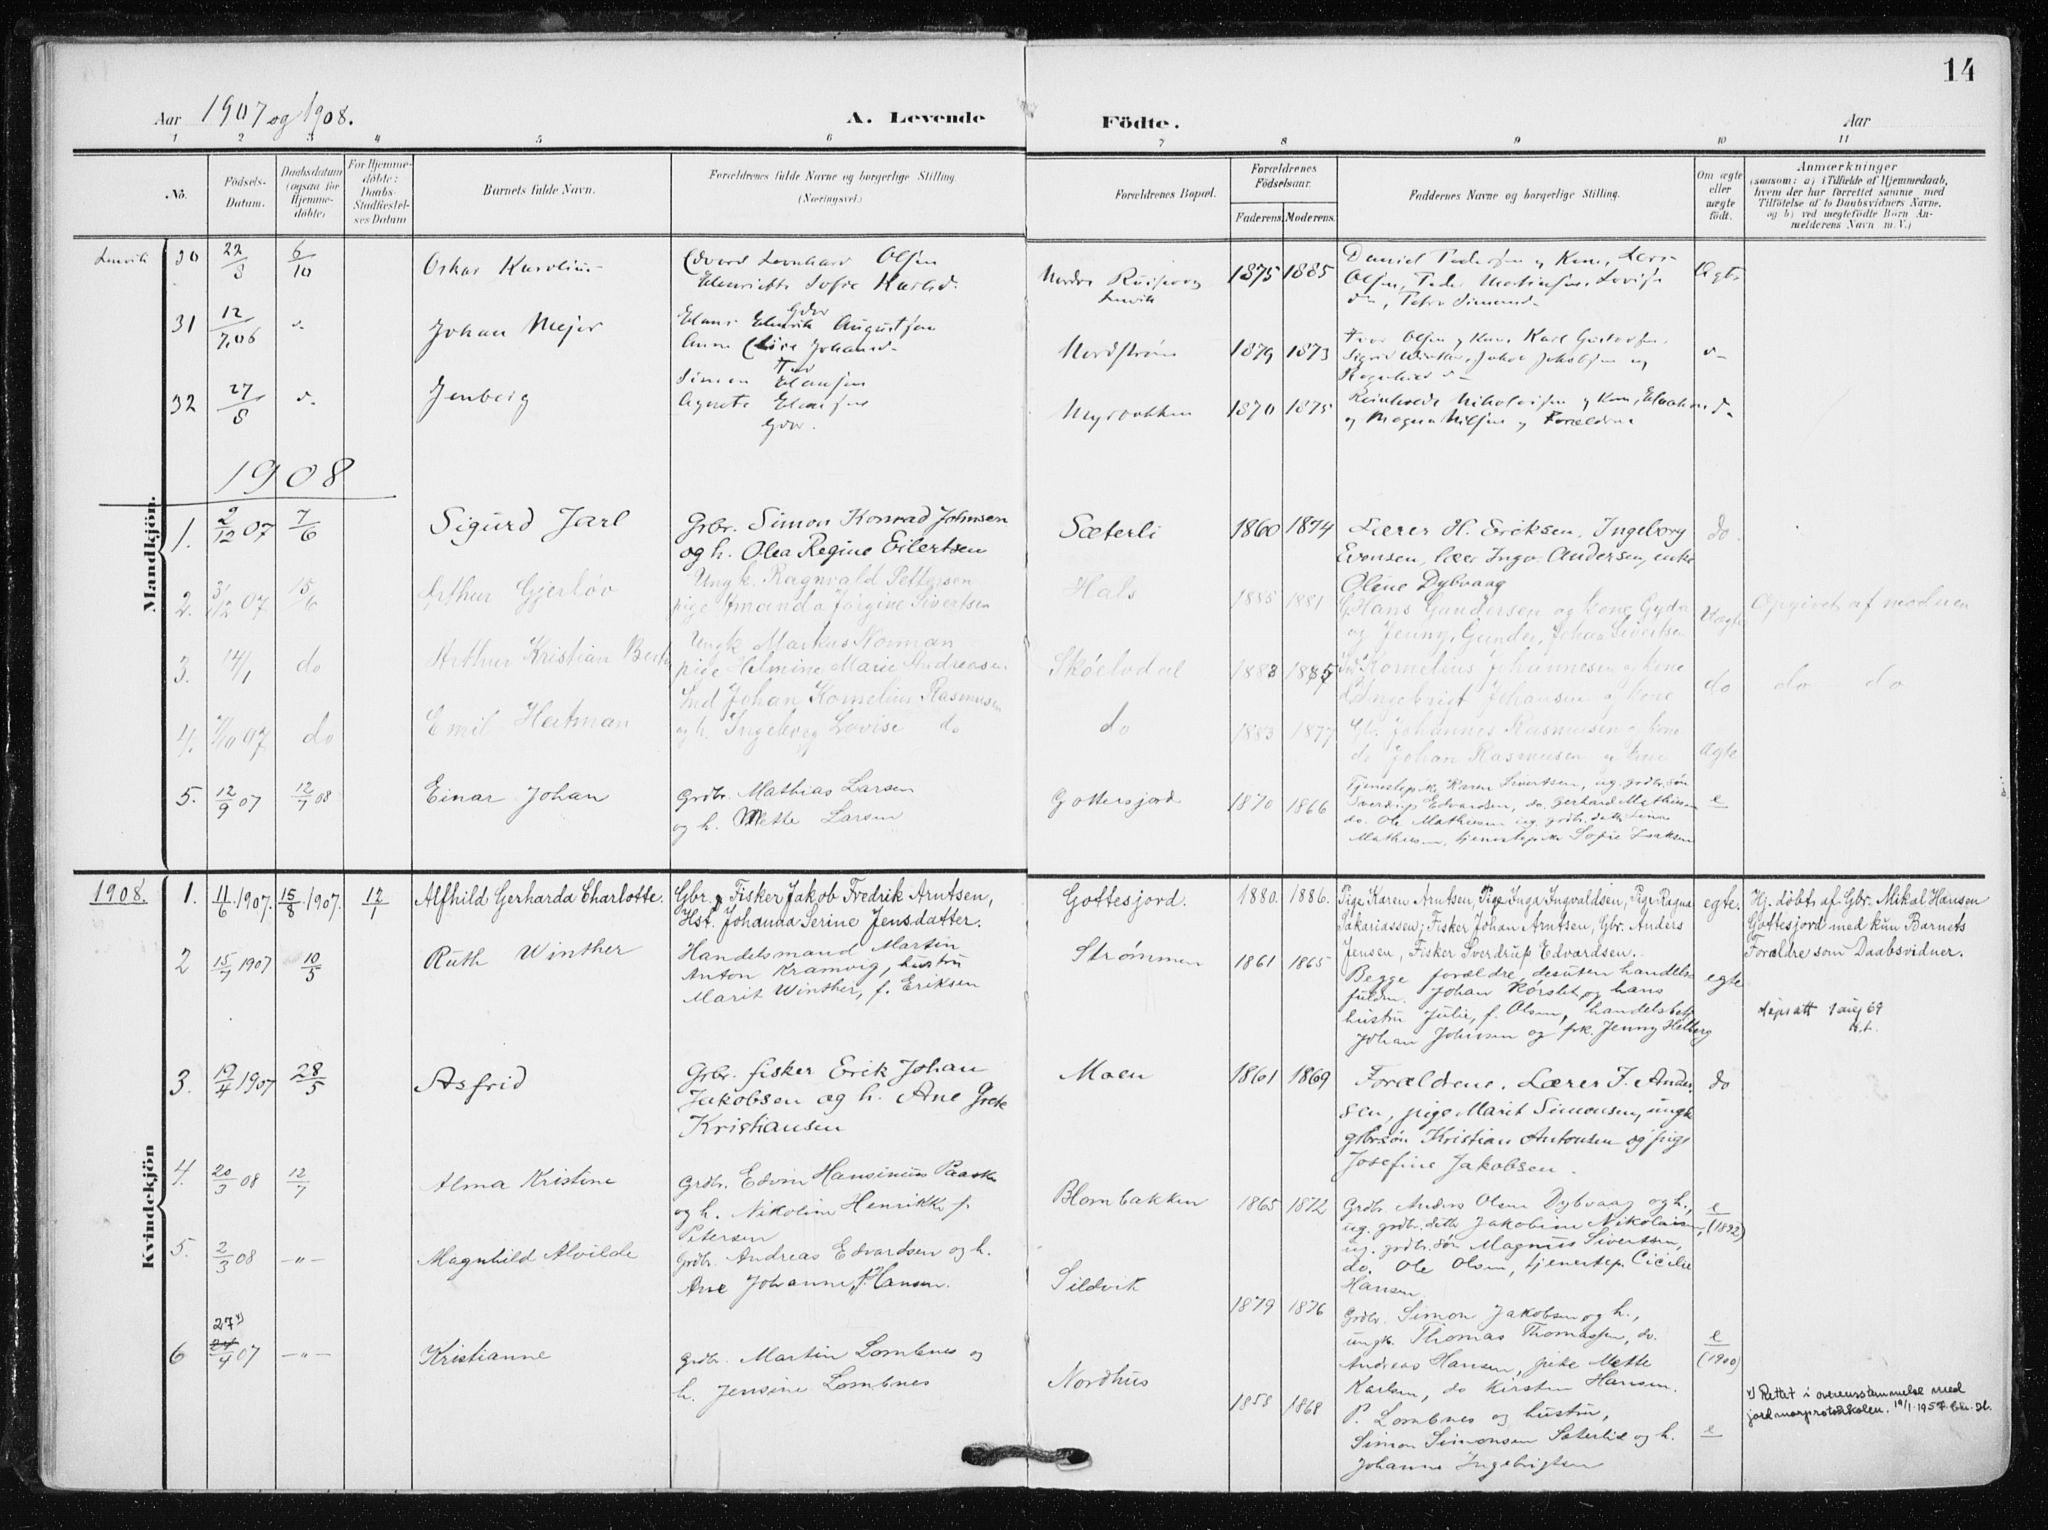 14
Aar 1907 og 1908. A. Levende Födte. Aar
1 2 3 4 5 6 7 8 9 10 11
No. Födsels-Datum. Daabsdatum (ogsaa for Hjemmedöbte) For Hjemmedöbte: Daabs-Stadfæstelses Datum Barnets fulde Navn. Forældrenes fulde Navne og borgerlige Stilling. (Næringsvei.) Forældrenes Bopæl. Forældrenes Födselsaar. Faderens Moderens. Faddernes Navne og borgerlige Stilling. Om ægte eller uægte födt. Anmærkninger (saasom: a) i Tilfælde af Hjemmedaab, hvem der har forrettet samme, med Tilföielse af to Daabsvidners Navne, og b) ved uegtefödte Börn Anmelderens Navn m. V.)
Mandkjön.
Lenvik 30 22/8 6/10 Oskar Karolius Edvard Leonhard Olsen
Henriette Sofie Karlsd.
Lenvik 1875 1885 Daniel Pedersen og Kone,
Olsen, Peder Martinsen, Lovise
Ægte
31 12/7.06 Johan Mejer Hans Henrik Augustsen
Gdbr
Nordström 1879 1873 Olsen og Kone, Karl Gustavsen,
32 27/8 Jenberg Simon Hansen
Agnete Hansen
Gdbr.
1870 1875 Nikolaisen og Kone,
og Magna Nilsen og Forældrene
1908
1. 2/12 07 7/6 Sigurd Jarl Grbr. Simon Konrad Johnsen
og h. Olea Regine Eilertsen
Sæterli 1860 1874 Lærer H. Eriksen, Ingeborg
Evensen, lær Inga Andersen, enke
Oline Dybvaag
do.
2. 31/12 07 15/6 Arthur Gjerløv Ungk. Ragnvald Pettersen
pige Amanda Jørgine Sivertsen
Hals 1885 1881 Hans Gundersen og kone Gyda
og Jenny Gunder, Johan Sivertsen
Uægte Opgivet af moderen
3. 14/1 do Arthur Kristian Ungk Markus Norman
pige Helmine Marie Andreassen
Skøelvdal 1883 Kornelius Johannesen og kone
Ingebrigt Johansen og kone
do do do
4. 07 do Emil Hertman Ind Johan Kornelius Rasmusen
og h. Ingeborg Lovise do
do 1883 1877 Gb. Johannes Rasmusen og kone
do Johan Rasmusen og kone
Ægte
5. 12/9 07 12/7 08 Einar Johan Grdbr. Mathias Larsen
og h. Mette Larsen
Gottersjord 1870 1866 Tjenestep. Karen Sivertsen, ug. grdbr. søn
Sverdrup Edvardsen, do. Gerhard Mathissen
do. Ole Mathissen ug. grdbr. datt. Lina
Mathissen, tjenestep. Sofie Isaksen
e
Kvindekjön
1908. 1. 11/6 1907. 15/8 1907. 12/1 Alfhild Gerharda Charlotte. Gbr. og Fisker Jakob Fredrik Arntsen,
Hst. Johanna Serine Jensdatter.
Gottesjord. 1880. 1886. Pige Karen Arntsen, Pige Inga Ingvaldsen, Pige Ragna
Sakariassen; Fisker Johan Arntsen, Gbr. Anders
Jensen, Fisker Sverdrup Edvardsen.
egte. Hj. døbt af Gbr. Mikal Hansen
Gottesjord med kun Barnets
Forældre som Daabsvidner.
2 15/7 1907 10/5 Ruth Winther Handelsmand Martin
Anton Kramvig, hustru
Marit Winther, f. Eriksen
Strømmen 1861 1865 Begge forældre, desuten handels
fuldm. Johan Kørslet og hans
hustru Julie, f. Olsen, handelsbetj
Johan Johnsen og frk. Jenny Helberg
egte
1 aug 69
3. 19/4 1907 28/5 Asfrid Grbr. fisker Erik Johan
Jakobsen og h. Ane Grete
Kristiansen
Moen 1861 1869 Forældrene. Lærer I. Ander-
sen, pige Marit Simonsen, ungk
gbrsøn Kristian Antonsen og pige
Josefine Jakobsen.
do
4. 20/3 08 12/7 Alma Kristine Grdbr. Edvin Hansinius Paaske
og h. Nikoline Henrikke f.
Petersen
Blombakken 1865 1872 Grdbr. Anders Olsen Dybvaag og h.,
ug. grdbr. dattr Jakobine Nikolaisen,
ug. grdbr. søn Magnus Sivertsen,
do. Ole Olsen, tjenestep. Cicilie
Hansen
e
(1892)
5. 2/3 08 -"- Magnhild Alvilde Grdbr. Andreas Edvardsen og h.
Ane Johanne f. Hansen.
Sildvik 1879 1876 Grdbr. Simon Jakobsen og h.,
ungk. Thomas Thomassen, do.
Andreas Hansen, pike Mette
Karlsen, do Kirsten Hansen.
e
(1900)
6 27*) 24/4 07 -"- Kristianne Grdbr. Martin Lombnes og
h. Jensine Lombnes
Nordhus 1858 1868 P. Lombnes og hustru,
Simon Simonsen Sæterlid og h.
Johanne Ingebrigtsen
e
*) Rettet i overensstemmelse med
jordmorprotokollen. 19/1.1957.